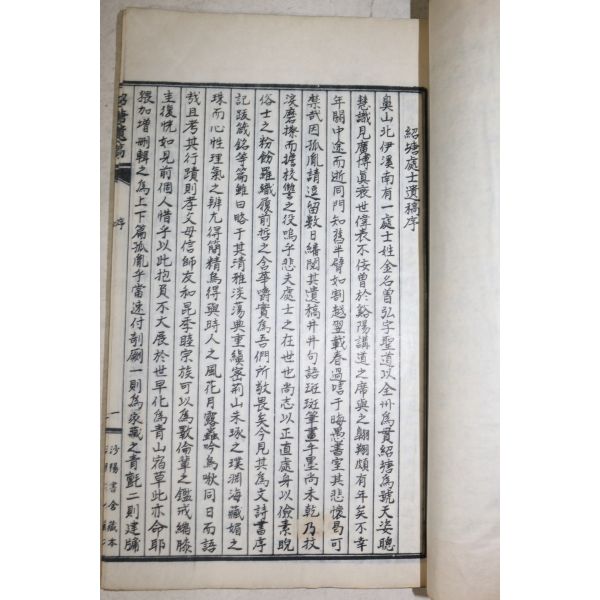 紹塘處士遺稿序
奧山北伊溪南有一處士姓金名曾弘字聖道以全州爲貫紹塘爲號天姿聰
慧識見廣博眞衰世偉表不佞曾於谿陽講道之席與之翱翔頗有年矣不幸
年關中途而逝同門知舊半臂如割越翌載春過唁于晦愚書室其悲懷曷可
禁哉因孤胤請逗留數日繙閱其遺稿井井句語斑斑筆畫手墨尚未乾乃抆
淚磨擦而擔校讐之役嗚乎悲夫處士之在世也尚志以正直處身以儉素睨
俗士之粉餙羅織履前哲之含華嚼實爲吾們所敬畏矣今見其爲文詩書序
記跋箴銘等篇雖曰略于其清雅淡蕩典重縝密荊山未琢之璞淵海藏媚之
珠而心性理氣之辨尤得簡精烏得與時人之風花月露蟲吟鳥啾同日而語
哉且考其行蹟則孝父母信師友和昆季睦宗族可以爲數倫輩之鑑戒編膝
圭復怳如見前個人惜乎以此抱負不大展於世早化爲青山宿草此亦命耶
猥加增刪輯之爲上下篇孤胤乎當速付剞劂一則爲家藏之青氈二則建牖
紹塘遺稿
序
一
汐陽書舍藏本